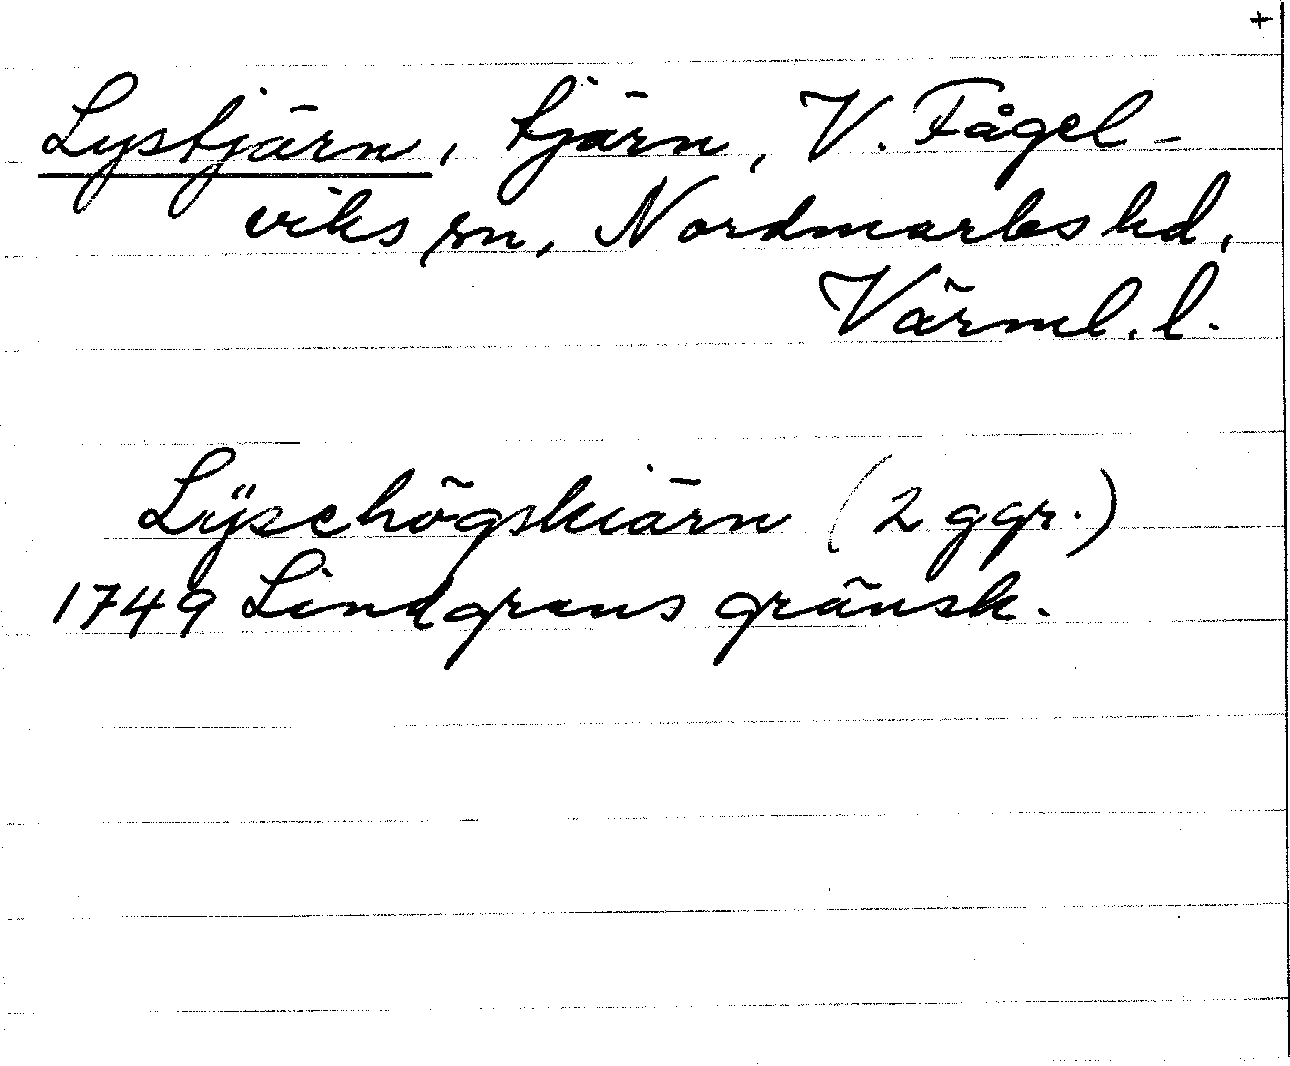 +
Lystjärn, tjärn, V. Fågel-
viks sn, Nordmarks hd,
Värml. l.
Lÿsehögskiärn (2 ggr.)
1749 Lindgrens gränsk.